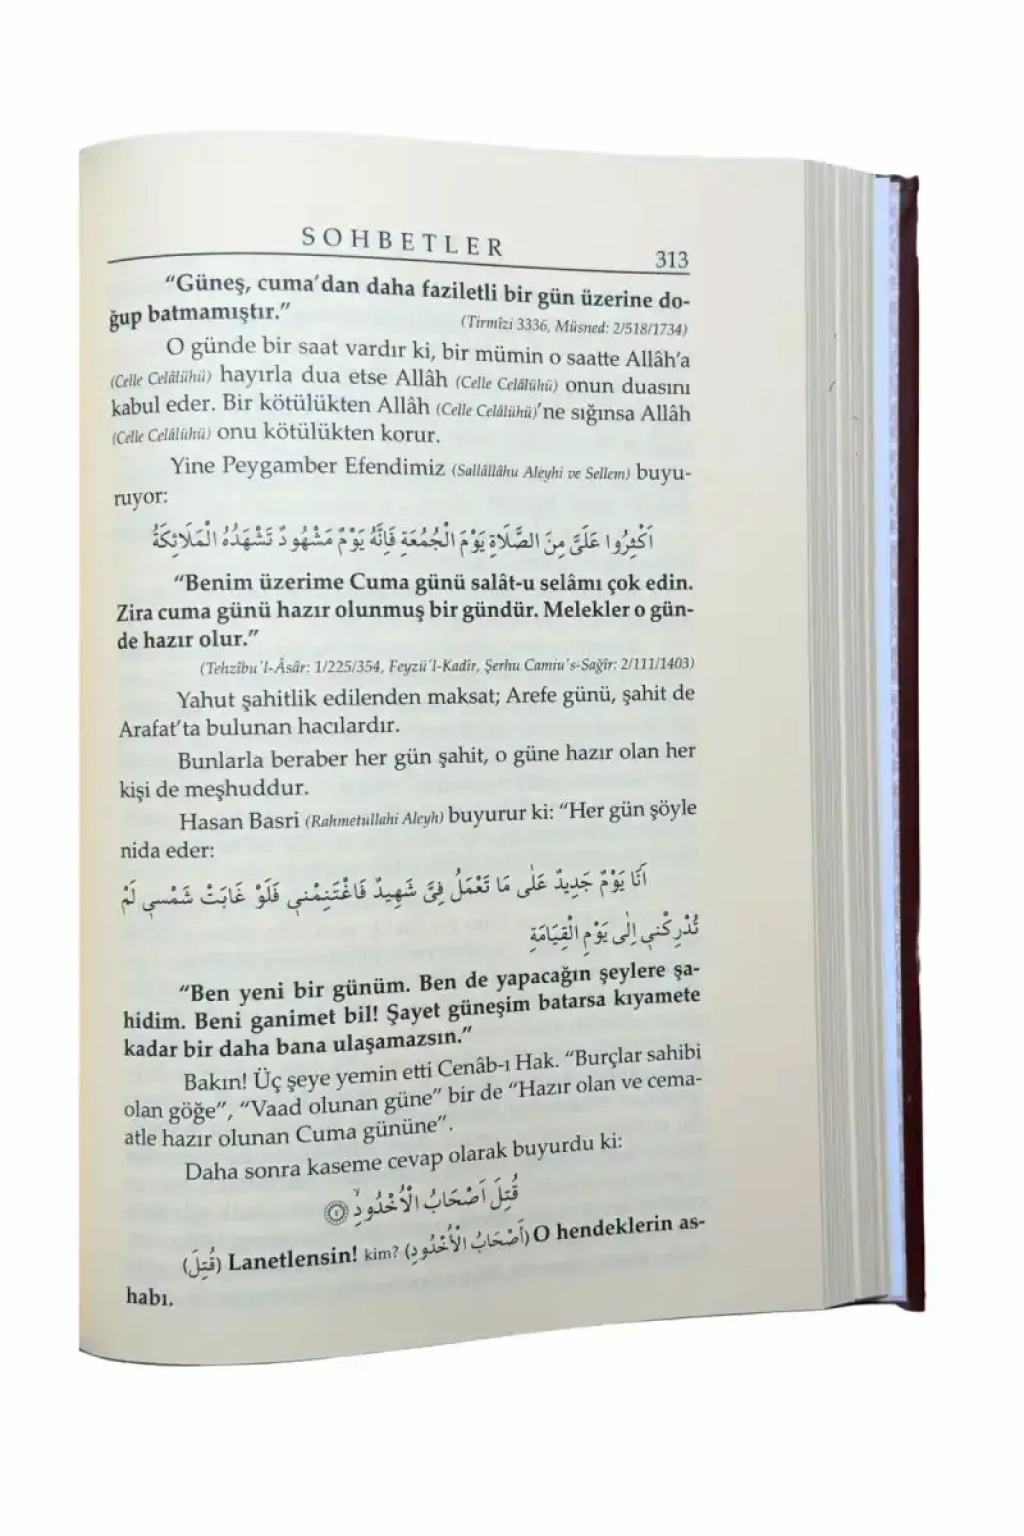 SOHBETLER
313
“Güneş, cuma’dan daha faziletli bir gün üzerine do-
ğup batmamıştır.”
(Tirmîzi 3336, Müsned: 2/518/1734)
O günde bir saat vardır ki, bir mümin o saatte Allâh’a
(Celle Celâlühü) hayırla dua etse Allâh (Celle Celâlühü) onun duasını
kabul eder. Bir kötülükten Allâh (Celle Celâlühü)’ne sığınsa Allâh
(Celle Celâlühü) onu kötülükten korur.
Yine Peygamber Efendimiz (Sallâllâhu Aleyhi ve Sellem) buyu-
ruyor:
اَكْثِرُوا عَلَىَّ مِنَ الصَّلَاةِ يَوْمَ الْجُمُعَةِ فَاِنَّهُ يَوْمٌ مَشْهُودٌ تَشْهَدُهُ الْمَلَائِكَةُ
“Benim üzerime Cuma günü salât-u selâmı çok edin.
Zira cuma günü hazır olunmuş bir gündür. Melekler o gün-
de hazır olur.”
(Tehzîbu’l-Âsâr: 1/225/354, Feyzü’l-Kadîr, Şerhu Camiu’s-Sağîr: 2/111/1403)
Yahut şahitlik edilenden maksat; Arefe günü, şahit de
Arafat’ta bulunan hacılardır.
Bunlarla beraber her gün şahit, o güne hazır olan her
kişi de meşhuddur.
Hasan Basri (Rahmetullahi Aleyh) buyurur ki: “Her gün şöyle
nida eder:
اَنَا يَوْمٌ جَدِيدٌ عَلٰى مَا تَعْمَلُ فِىَّ شَهِيدٌ فَاغْتَنِمْنِى فَلَوْ غَابَتْ شَمْسِى لَمْ
تُدْرِكْنِى اِلٰى يَوْمِ الْقِيَامَةِ
“Ben yeni bir günüm. Ben de yapacağın şeylere şa-
hidim. Beni ganimet bil! Şayet güneşim batarsa kıyamete
kadar bir daha bana ulaşamazsın.”
Bakın! Üç şeye yemin etti Cenâb-ı Hak. “Burçlar sahibi
olan göğe”, “Vaad olunan güne” bir de “Hazır olan ve cema-
atle hazır olunan Cuma gününe”.
Daha sonra kaseme cevap olarak buyurdu ki:
قُتِلَ اَصْحَابُ الْاُخْدُودِۙ ﴿٤﴾
(قُتِلَ) Lanetlensin! kim? (أَصْحَابُ الْأُخْدُودِ) O hendeklerin as-
habı.